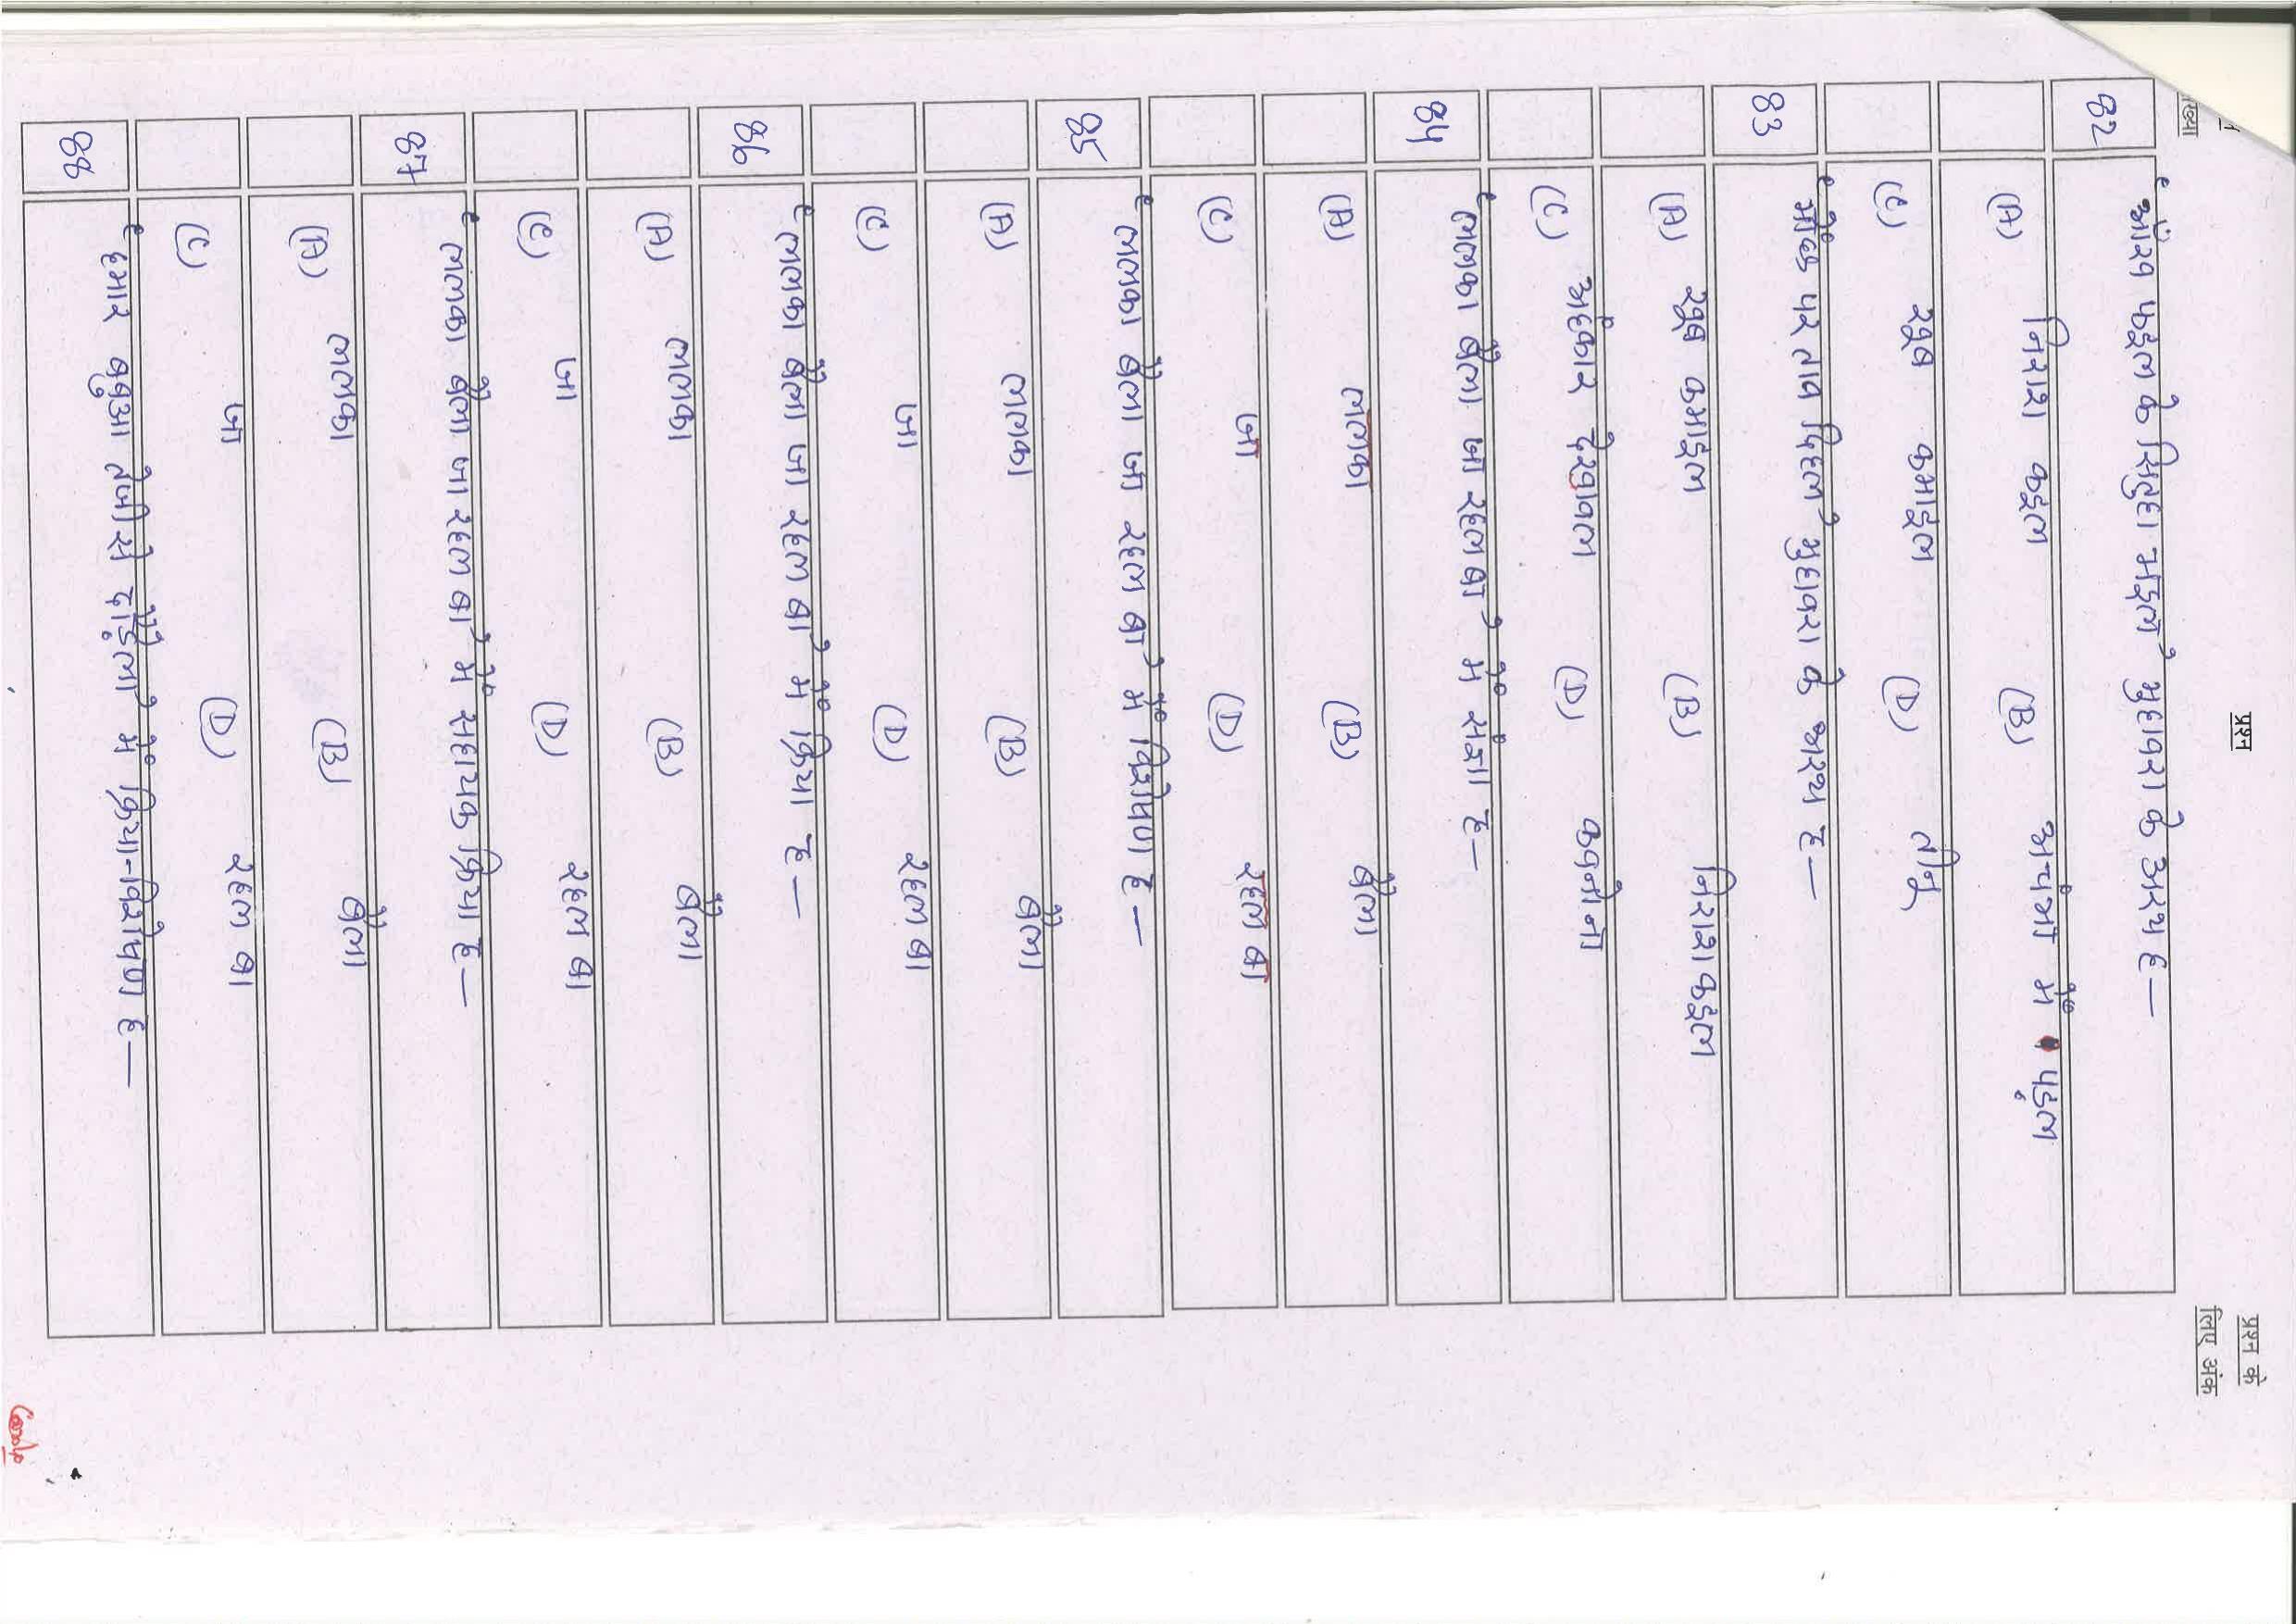 संख्या प्रश्न प्रश्न के
लिए अंक
82 'आँख फइल के सितुहा भइल' मुहावरा के अरथ ह—
(A) निराश कइल (B) अचंभा में पड़ल
(C) खूब कमाइल (D) तीनू
83 'मोंछ पर ताव दिहल' मुहावरा के अरथ ह—
(A) खूब कमाइल (B) निराश कइल
(C) अहंकार देखावल (D) कवनो ना
84 'ललका बैला जा रहल बा' में संज्ञा ह—
(A) ललका (B) बैला
(C) जा (D) रहल बा
85 'ललका बैला जा रहल बा' में विशेषण ह—
(A) ललका (B) बैला
(C) जा (D) रहल बा
86 'ललका बैला जा रहल बा' में क्रिया ह—
(A) ललका (B) बैला
(C) जा (D) रहल बा
87 'ललका बैला जा रहल बा' में सहायक क्रिया ह—
(A) ललका (B) बैला
(C) जा (D) रहल बा
88 'हमार बबुआ तेजी से दौड़ेला' में क्रिया-विशेषण ह—